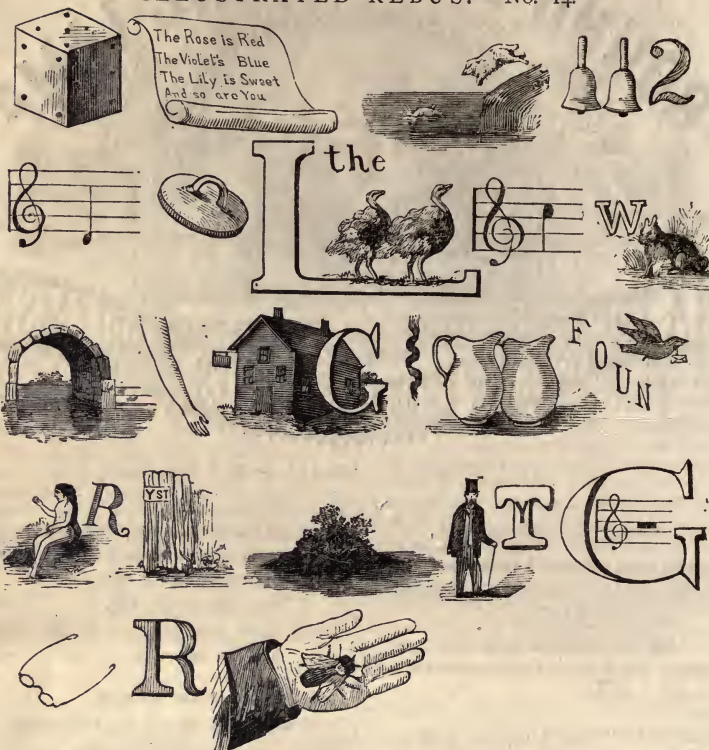 ILLUSTRATED REBUS. No. 14.
The Rose is Red
The Violet's Blue
The Lily is Sweet
And so are You
2
the
L
W
G
FOUN
R
YST
T
G
R